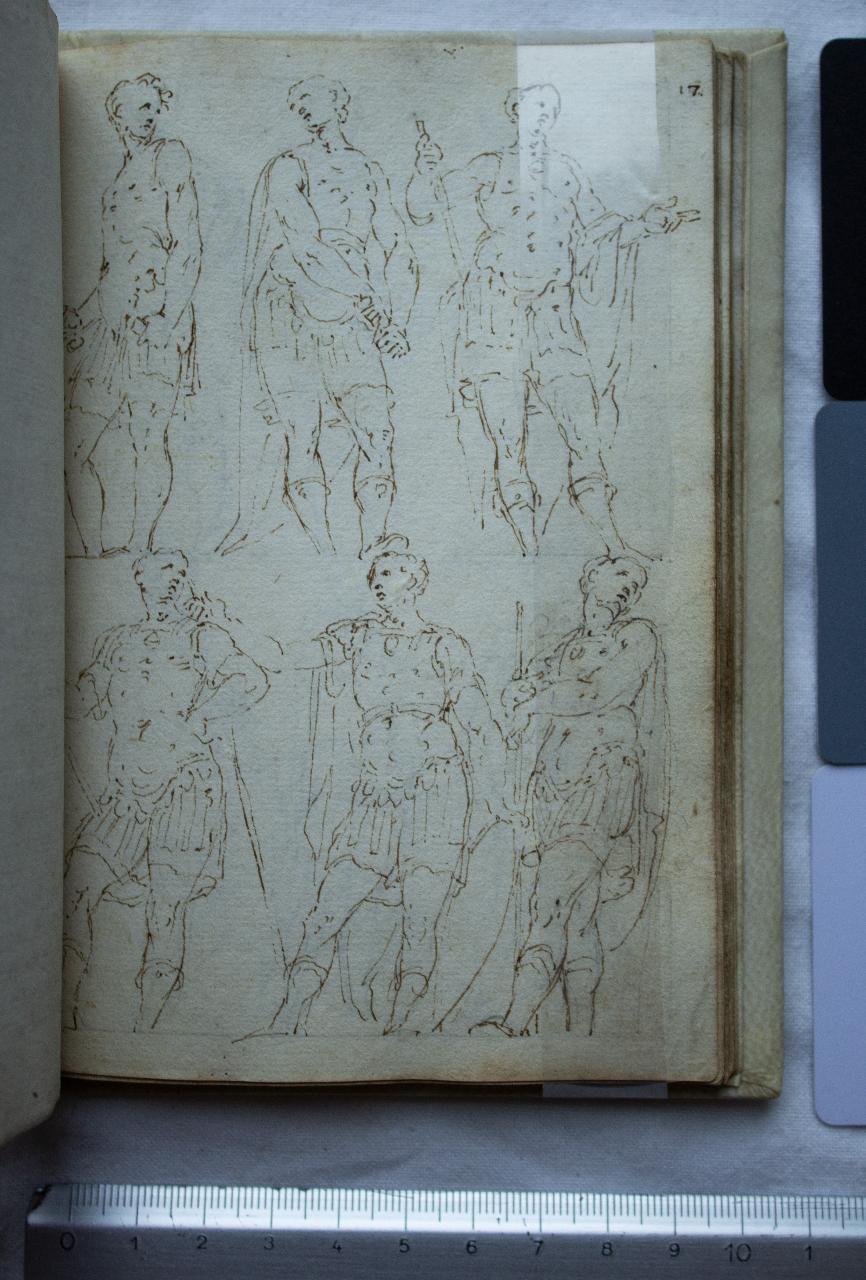 17.
0 1 2 3 4 5 6 7 8 9 10 1